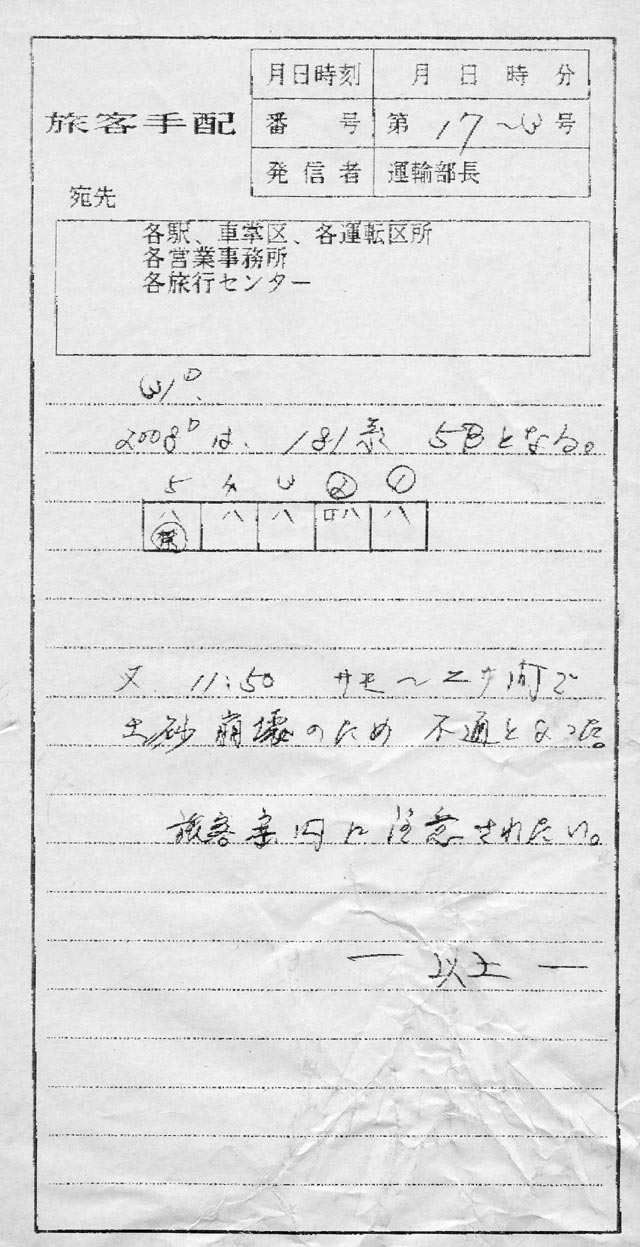 月日時刻 月 日 時 分
旅客手配
番 号 第 17〜3 号
発信者 運輸部長
宛先
各駅、車掌区、各運転区所
各営業事務所
各旅行センター
31D.
2008Dは、181系 5Bとなる。
5 4 3 ② ①
ハ ハ ハ ロハ ハ
又 11:50 サモ〜ニウ間で
土砂崩壊のため 不通となった。
旅客案内に注意されたい。
― 以上 ―